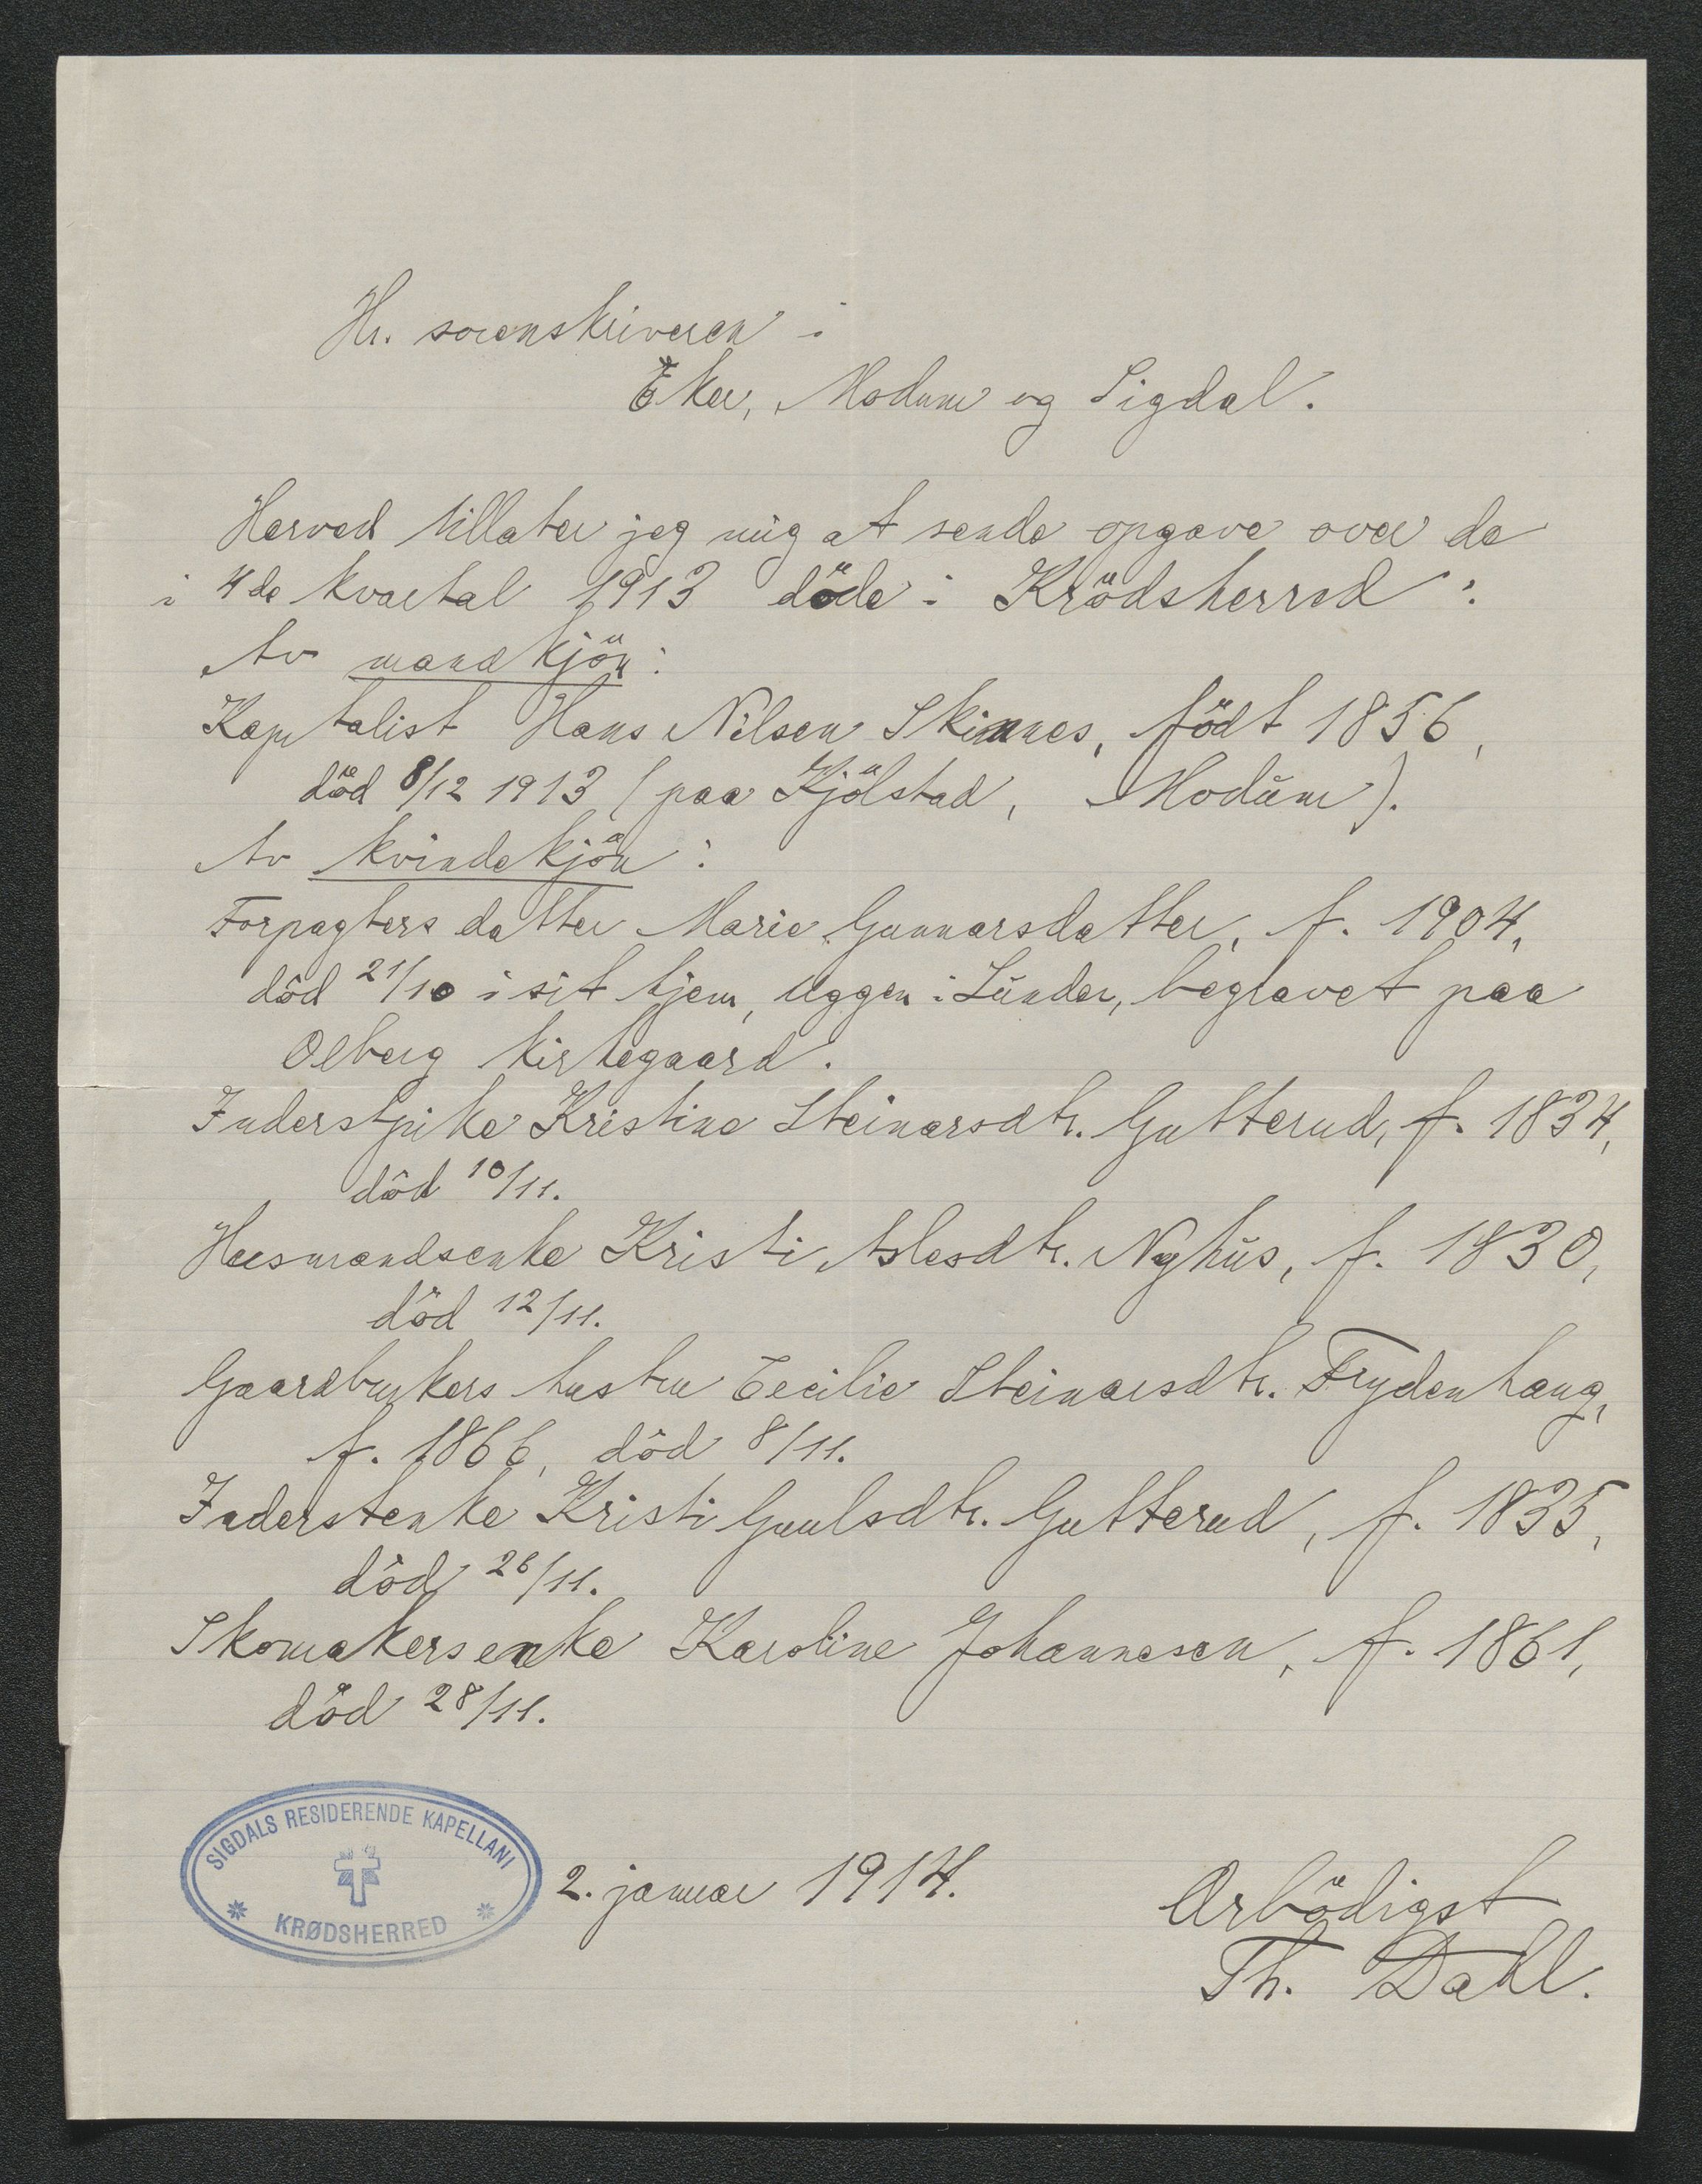 Hr. sorenskriveren i
Eker, Modum og Sigdal.
Herved tillater jeg mig at sende opgave over de
i 4de kvartal 1913 döde i Krödsherred:
Av mandkjön:
Kapitalist Hans Nilsen Skinnes, födt 1856,
död 8/12 1913 (paa Kjölstad, Modum).
Av kvindekjön:
Forpagters datter Marie Gunnarsdatter, f. 1904,
död 21/10 i sit hjem, Uggen i Lunder, begravet paa
Olberg kirkegaard.
Inderstpike Kristine Steinarsdtr. Gutterud, f. 1834,
död 10/11.
Husmandsenke Kristi Aslesdtr. Nyhus, f. 1830,
död 12/11.
Gaardbrukers hustru Cecilie Steinarsdtr. Frydenhaug,
f. 1866, död 8/11.
Inderstenke Kristi Guulsdtr. Gutterud, f. 1835,
död 26/11.
Skomakersenke Karoline Johannesen, f. 1861,
död 28/11.
SIGDALS RESIDERENDE KAPELLANI
KRØDSHERRED
2. januar 1914.
Ærbödigst
Th. Dahl.